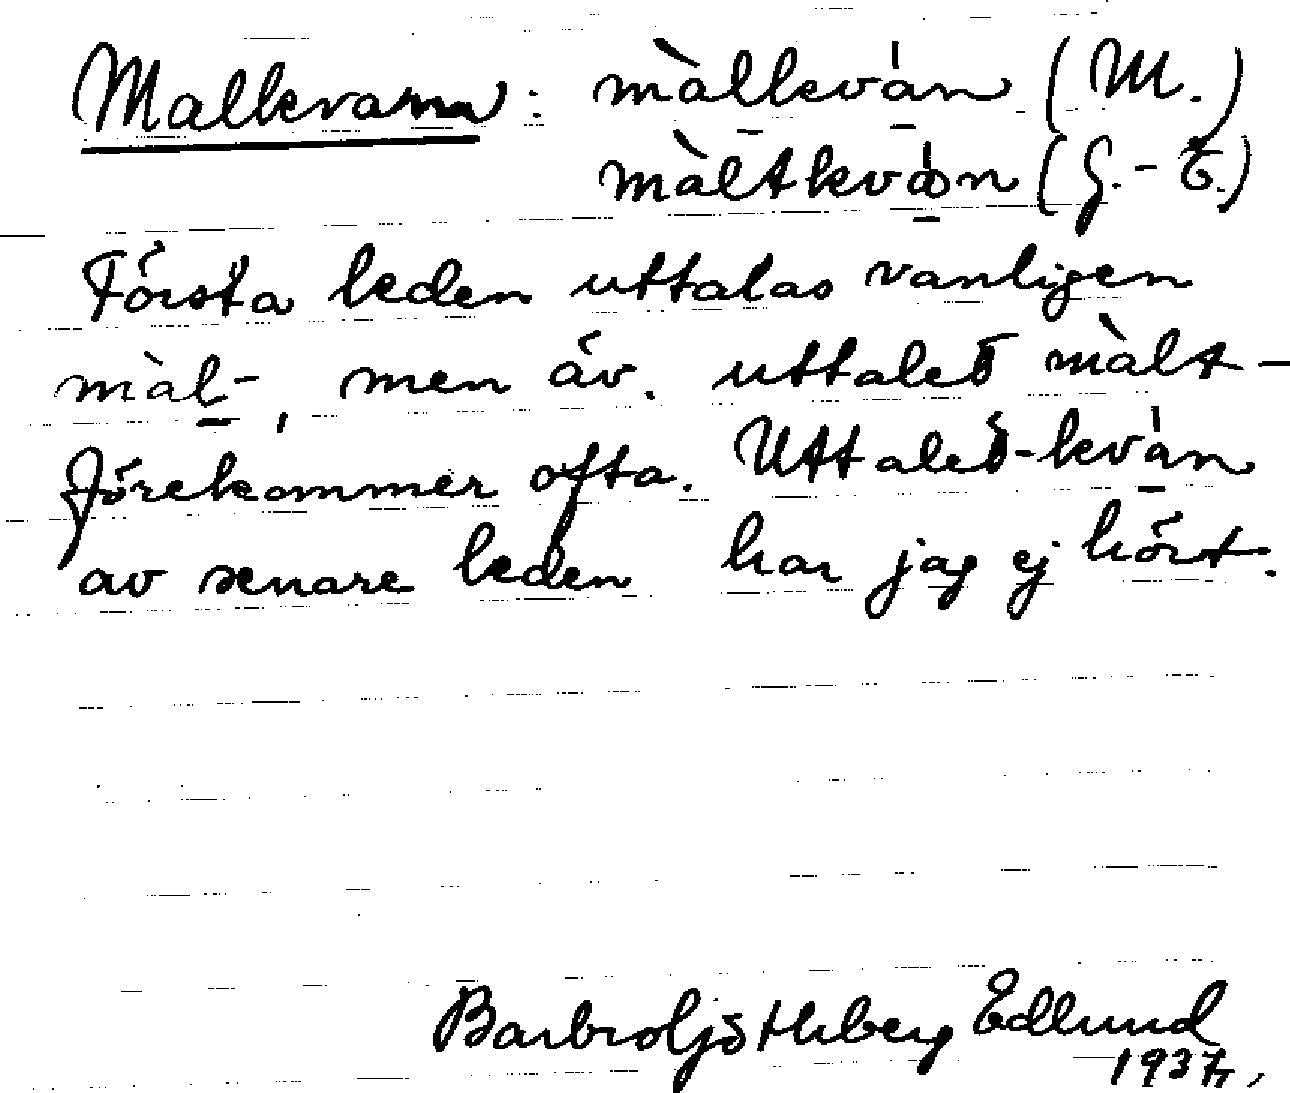 Mallkvarna: màllkván (M.)
màltkvón (G.-E.)
Första leden uttalas vanligen
màl-, men äv. uttalet màlt-
förekommer ofta. Uttalet -kván
av senare leden har jag ej hört.
Barbro Ljöthberg Edlund
1937.